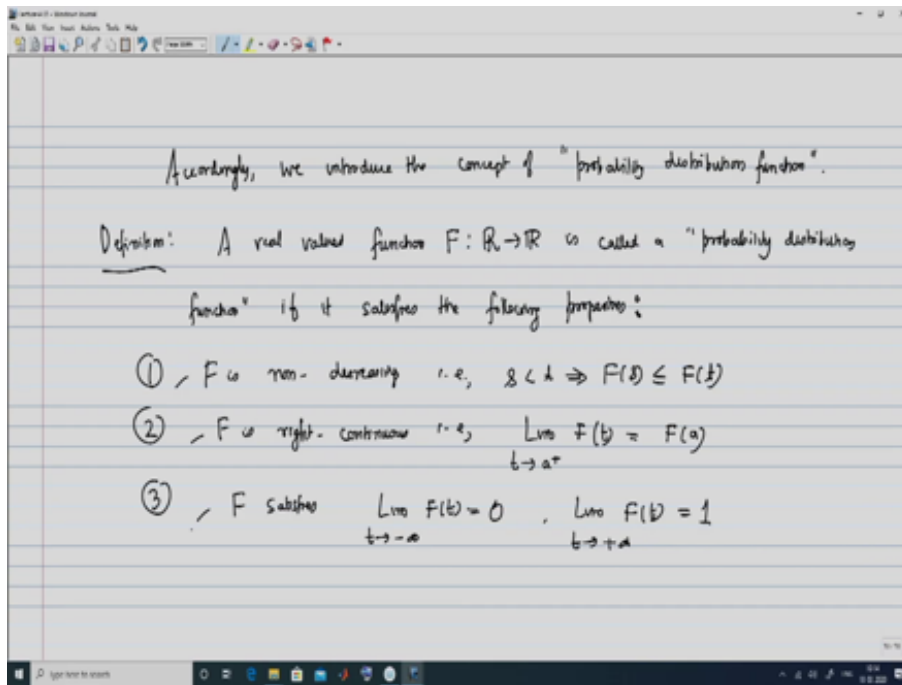 File Edit View Insert Actions Tools Help
Accordingly, we introduce the concept of "probability distribution function".
Definition: A real valued function F: ℝ→ℝ is called a "probability distribution
function" if it satisfies the following properties:
① F is non-decreasing i.e, s < t ⇒ F(s) ≤ F(t)
② F is right-continuous i.e, Lim F(t) = F(a)
t→a+
③ F satisfies Lim F(t) = 0 , Lim F(t) = 1
t→-∞ t→+∞
Type here to search